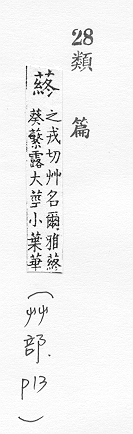 28類篇
蔠 之戎切艸名爾雅蔠
葵蘩露大莖小葉華
(艸部. p13)